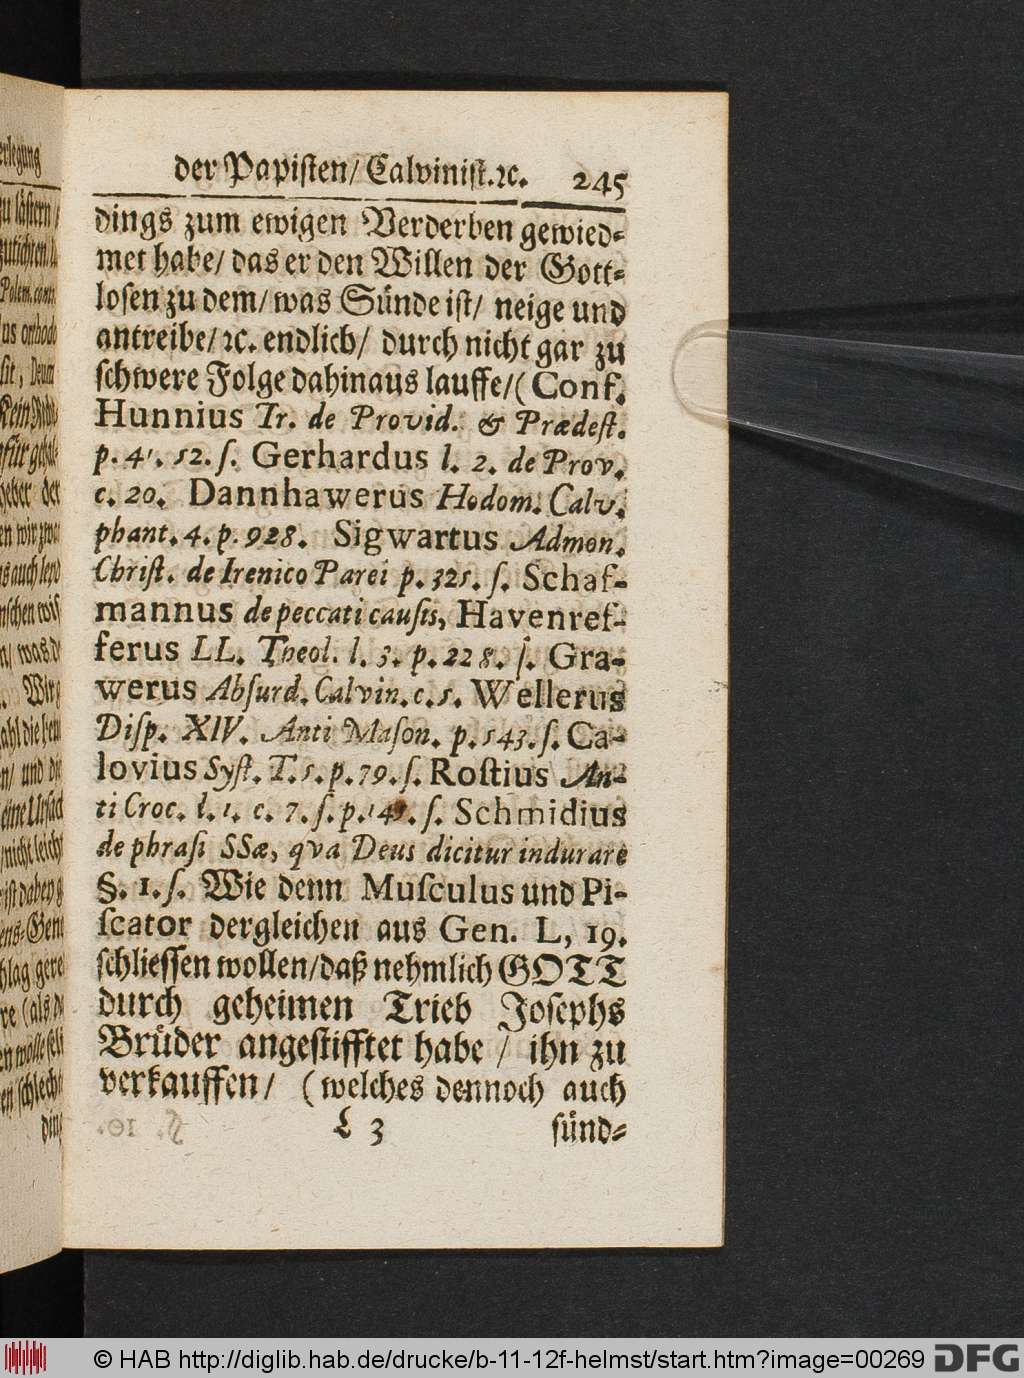 der Papisten/ Calvinist.ꝛc. 245
dings zum ewigen Verderben gewied⸗
met habe/ das er den Willen der Gott⸗
losen zu dem/ was Sünde ist/ neige und
antreibe/ ꝛc. endlich/ durch nicht gar zu
schwere Folge dahinaus lauffe/ (Conf.
Hunnius Tr. de Provid. & Prædeſt.
p. 4 . 52. ſ. Gerhardus l. 2. de Prov.
c. 20. Dannhawerus Hodom. Calv.
phant. 4. p. 928. Sigwartus Admon.
Chriſt. de Irenico Parei p. 325. ſ. Schaf-
mannus de peccati cauſis, Havenref-
ferus LL. Theol. l. 3. p. 228. ſ. Gra-
werus Abſurd. Calvin. c. 5. Wellerus
Diſp. XIV. Anti Maſon. p. 543. ſ. Ca-
lovius Syſt. T. 5. p. 79. ſ. Roſtius An-
ti Croc. l. 1. c. 7. ſ. p. ſ. Schmidius
de phraſi SSæ, qva Deus dicitur indurare
§. 1. ſ. Wie denn Muſculus und Pi-
ſcator dergleichen aus Gen. L, 19.
schliessen wollen/ daß nehmlich GOTT
durch geheimen Trieb Josephs
Brüder angestifftet habe / ihn zu
verkauffen/ (welches dennoch auch
L 3 sünd⸗
erlegung
zu lästern /
Polem. cont.
sit, Deum
für gehal-
geber der
en wir zwar
n/ was d
. Wir
n/ und di
/nicht leicht
hlag gere
re (als d
en schlecht
ding
© HAB http://diglib.hab.de/drucke/b-11-12f-helmst/start.htm?image=00269 DFG